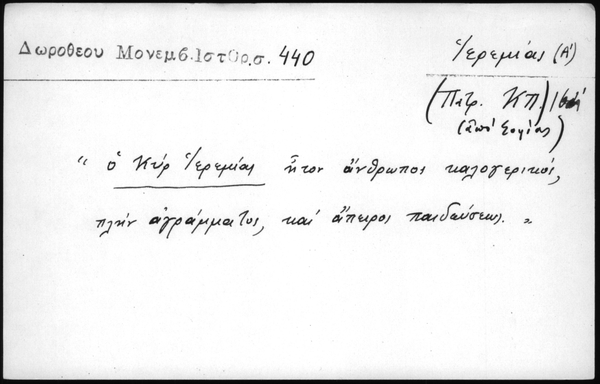 Δωροθεου Μονεμβ.Ιστορ.σ. 440
Ἱερεμίας (Α')
(Πατρ. ΚΠ.)
(ἀπό Σοφίας)
" ὁ Κύρ Ἱερεμίας ἦτον ἄνθρωπος καλογερικός,
πλήν ἀγράμματος, καί ἄπειρος παιδεύσεως. "